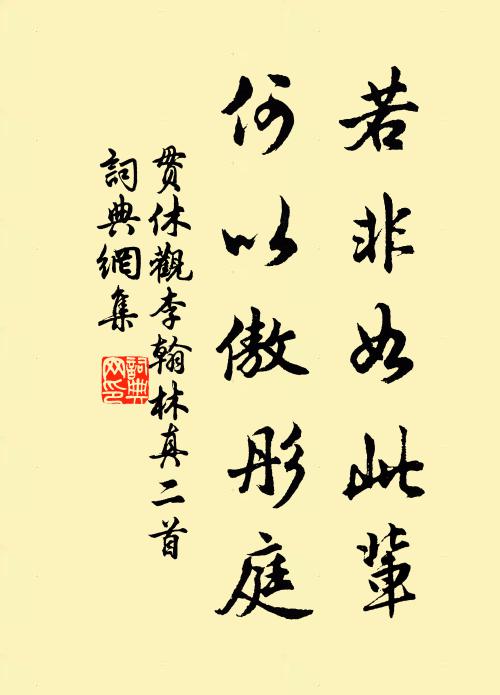 若非如此輩
何以傲彤庭
貫休觀李翰林真二首
詞典網集
詞典網印